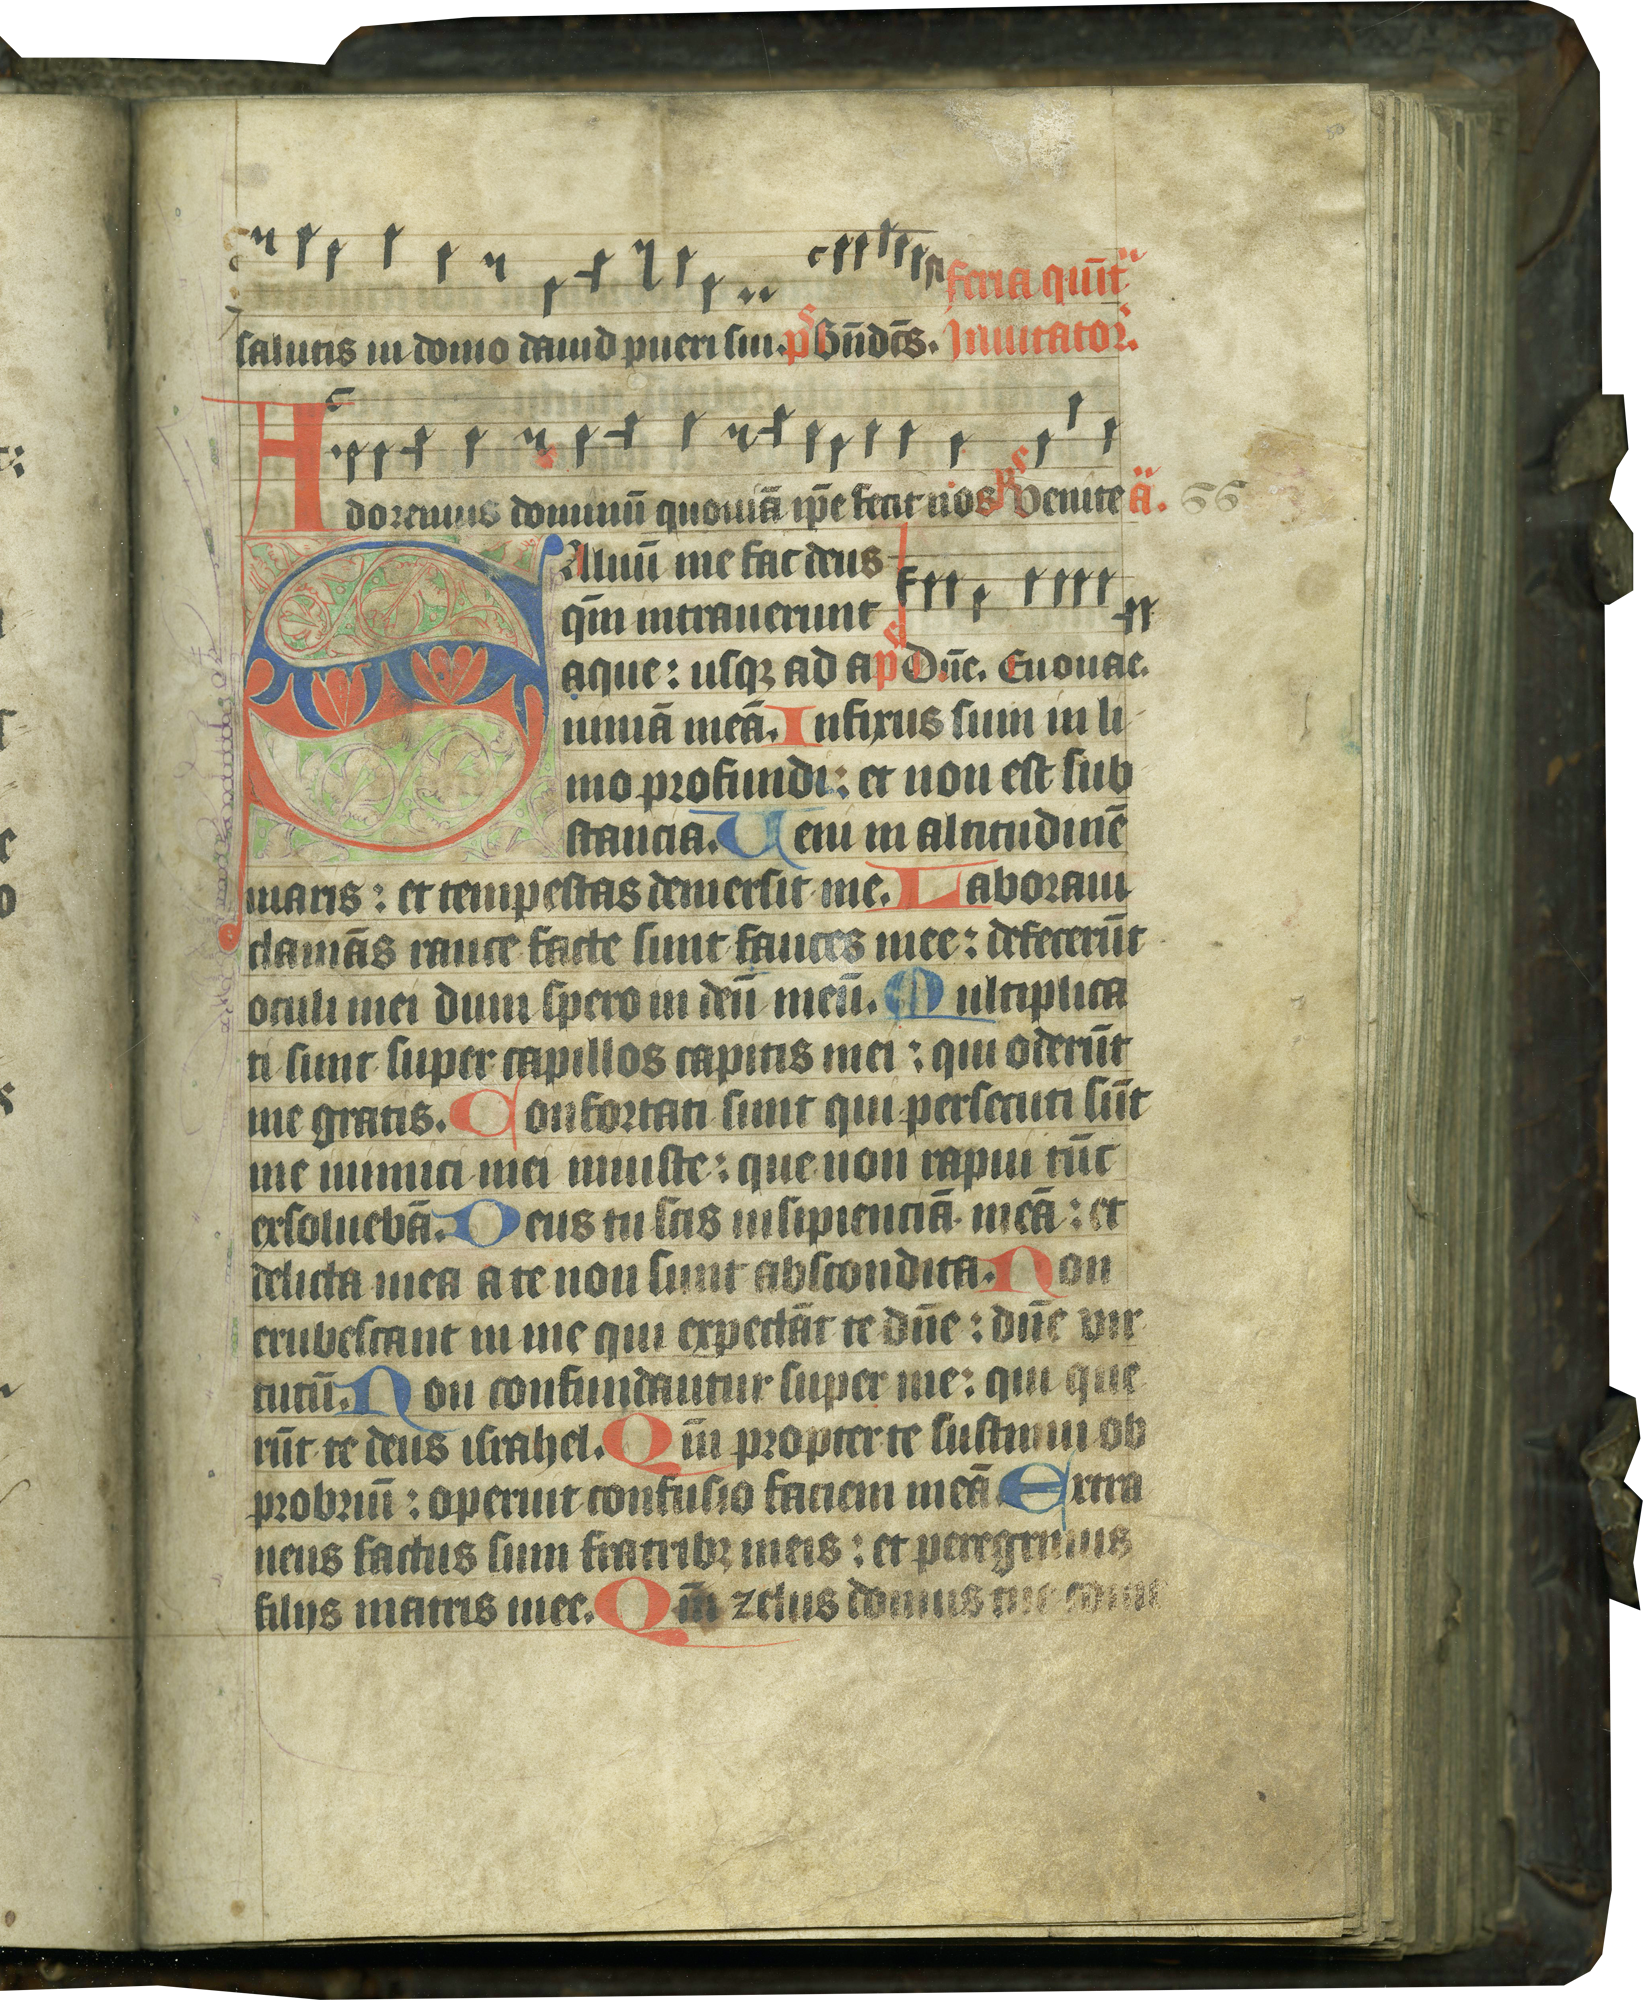 feria quīt
salutis in domo dauid pueri sui. ps Bn̄dc̄s. Inuitator.
Adoremus dominū quoniā ip̄e fecit nos ps Venite a. 66
Saluū me fac deus
qm̄ intrauerunt
aque: usqꝫ ad a ps Dn̄e. Euouae.
nimā meā. Infixus sum in li
mo profundi: et non est sub
stancia. Ueni in altitudinē
maris: et tempestas demersit me. Laboraui
clamās rauce facte sunt fauces mee: defecerūt
oculi mei dum spero in deū meū. Multiplica
ti sunt super capillos capitis mei: qui oderūt
me gratis. Confortati sunt qui persecuti sūt
me inimici mei iniuste: que non rapui tūc
exsoluebā. Deus tu scis insipienciā meā: et
delicta mea a te non sunt abscondita. Non
erubescant in me qui expectāt te dn̄e: dn̄e vir
tutū. Non confundantur super me: qui que
rūt te deus israhel. Qm̄ propter te sustinui ob
probriū: operuit confusio faciem meā Extra
neus factus sum fratribꝫ meis: et peregrinus
filijs matris mee. Qm̄ zelus domus tue comē